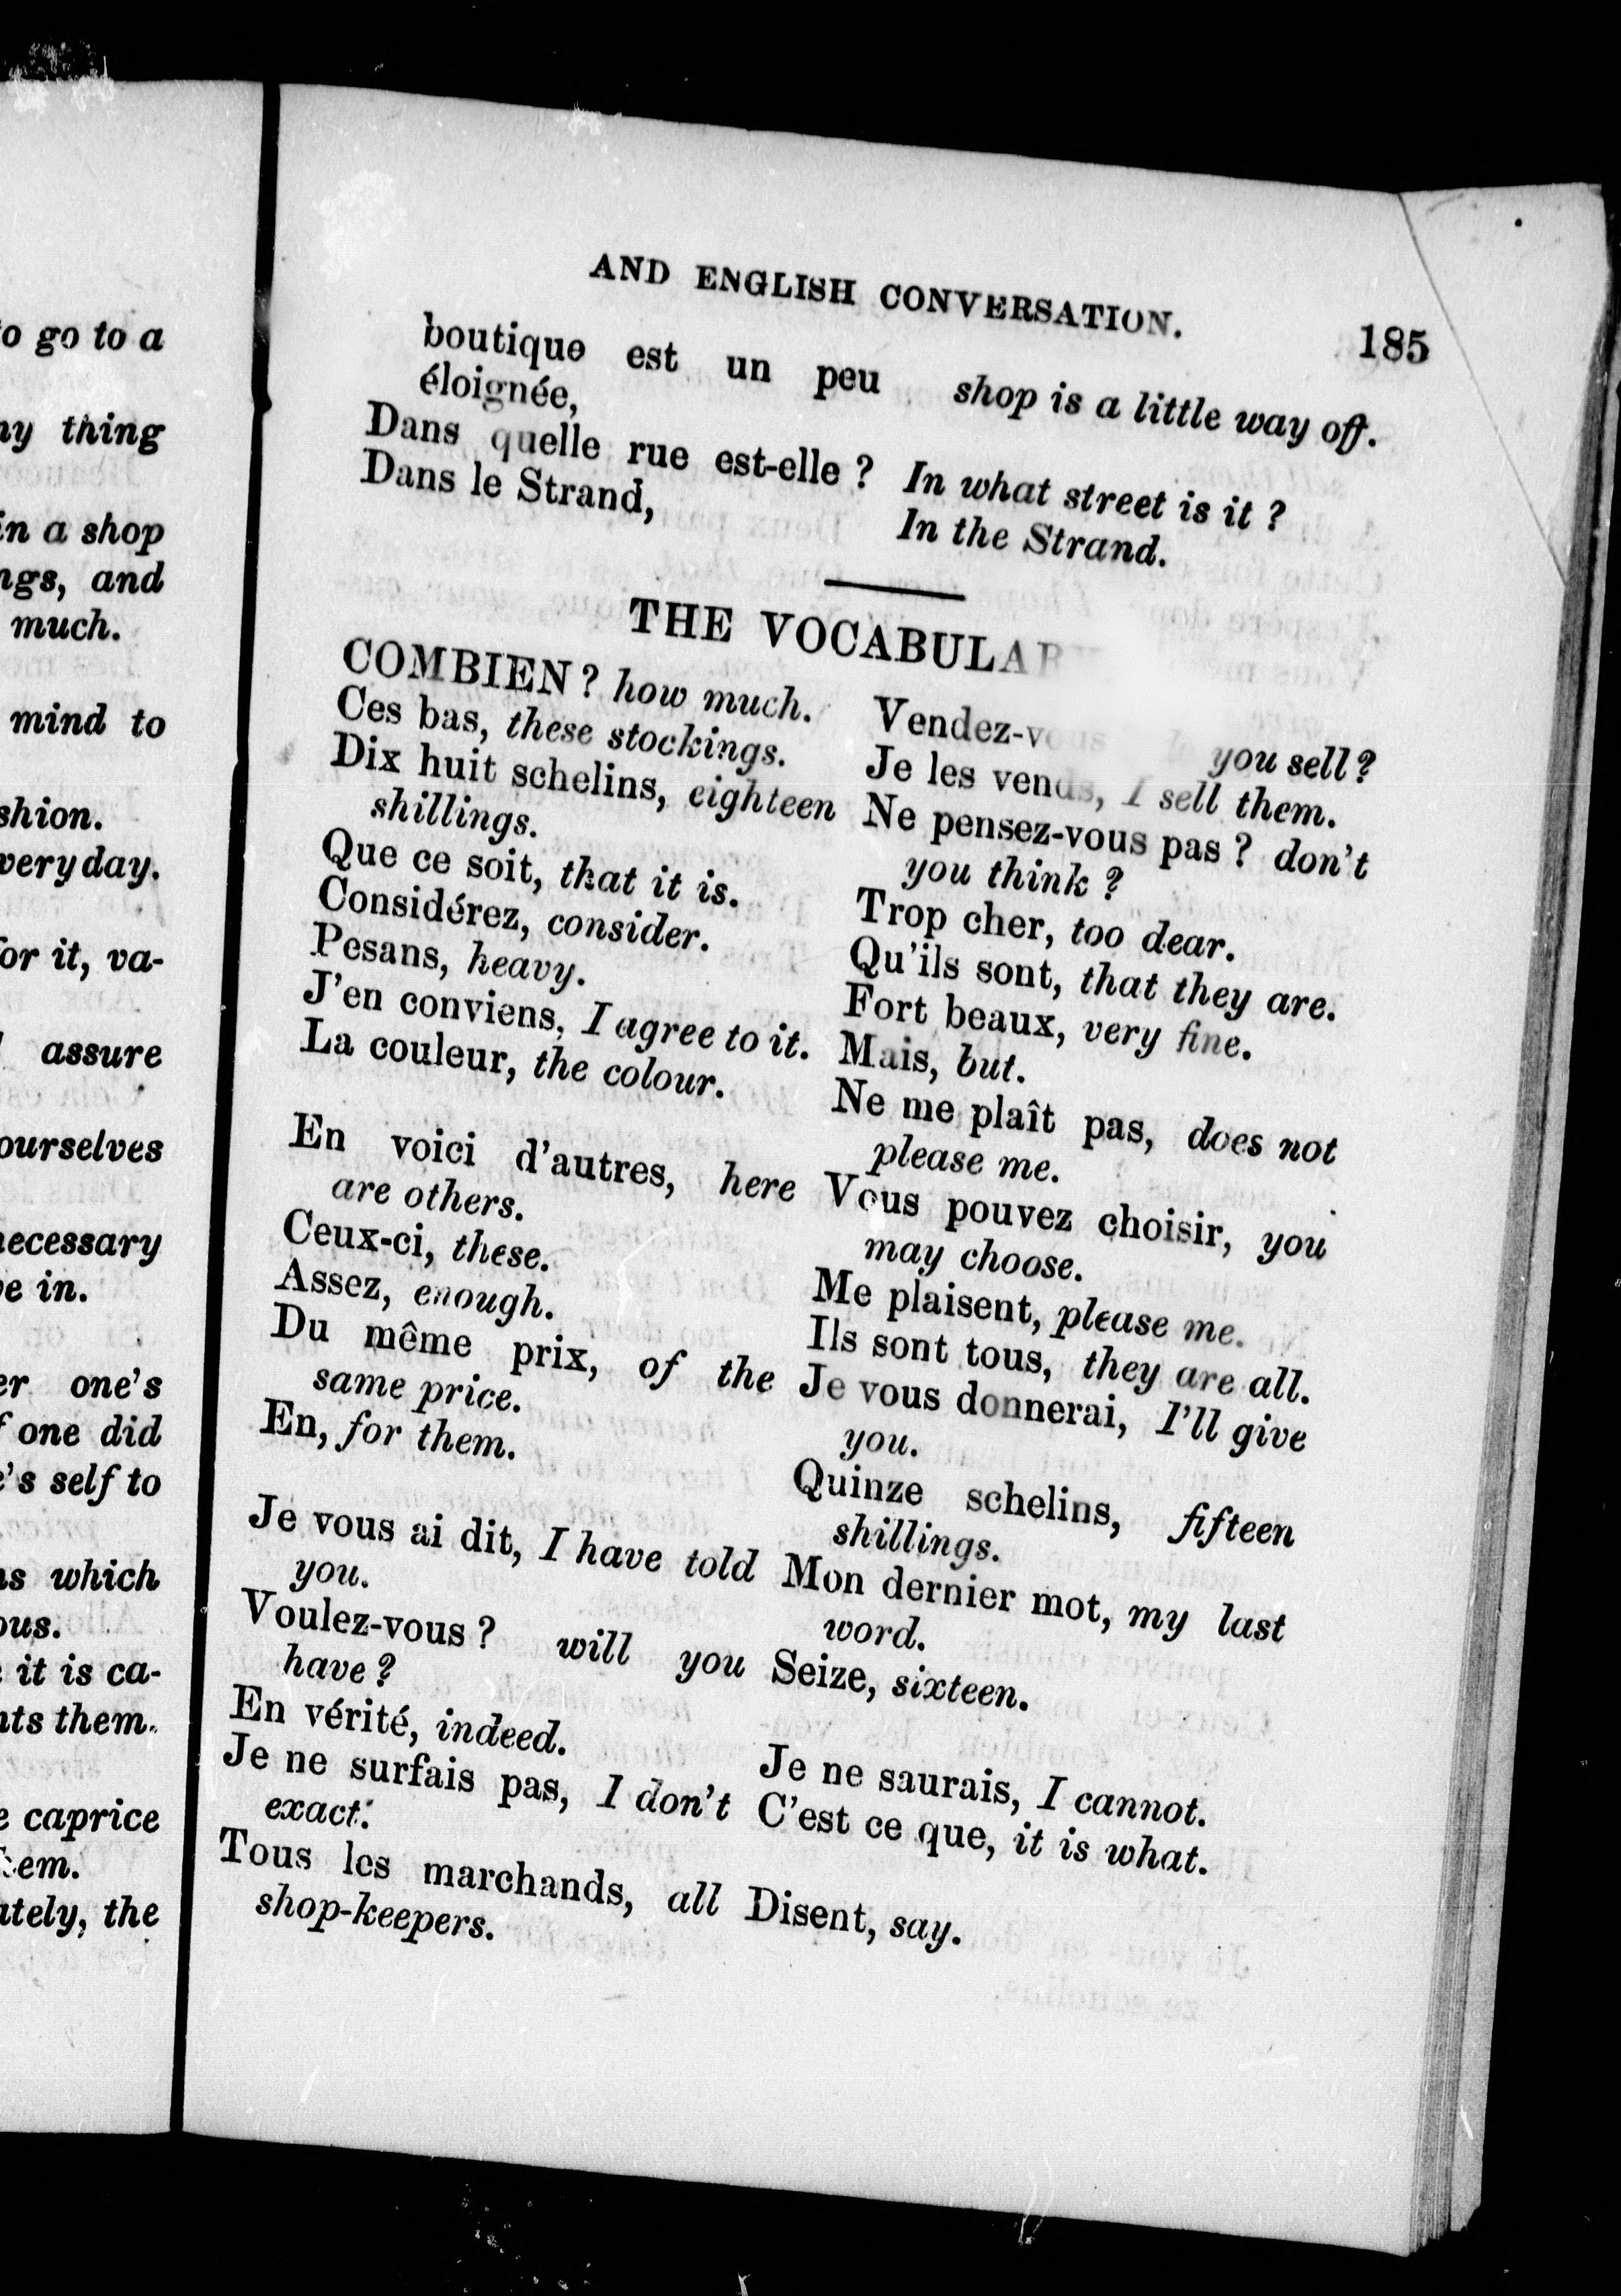 o go to a
thing
in a shop
and
much.
mind to
shion.
very day.
for it, va-
assure
ourselves
necessary
e in.
er one's
one did
's self to
s which
ous.
it is ca-
nts them.
caprice
em.
ately, the
AND ENGLISH CONVERSATION. 185
boutique est un peu
éloignée,
shop is a little way off.
Dans quelle rue est-elle ? In what street is it ?
Dans le Strand, In the Strand.
THE VOCABULAR
COMBIEN ? how much.
Ces bas, these stockings.
Dix huit schelins, eighteen
shillings.
Que ce soit, that it is.
Considérez, consider.
Pesans, heavy.
J'en conviens, I agree to it.
La couleur, the colour.
En voici d'autres, here
are others.
Ceux-ci, these.
Assez, enough.
Du même prix, of the
same price.
En, for them.
Je vous ai dit, I have told
you.
Voulez-vous ? will you
have ?
En vérité, indeed.
Je ne surfais pas, I don't
exact.
Tous les marchands, all
shop-keepers.
Vendez-vous you sell ?
Je les vends, I sell them.
Ne pensez-vous pas ? don't
you think ?
Trop cher, too dear.
Qu'ils sont, that they are.
Fort beaux, very fine.
Mais, but.
Ne me plaît pas, does not
please me.
Vous pouvez choisir, you
may choose.
Me plaisent, please me.
Ils sont tous, they are all.
Je vous donnerai, I'll give
you.
Quinze schelins, fifteen
shillings.
Mon dernier mot, my last
word.
Seize, sixteen.
Je ne saurais, I cannot.
C'est ce que, it is what.
Disent, say.